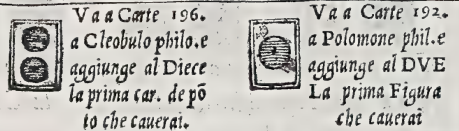 Va a Carte 196.
a Cleobulo philo.e
aggiunge al Diece
la prima car. de põ
to che cauerai.
Va a Carte 192.
a Polomone phil.e
aggiunge al DVE
La prima Figura
che cauerai